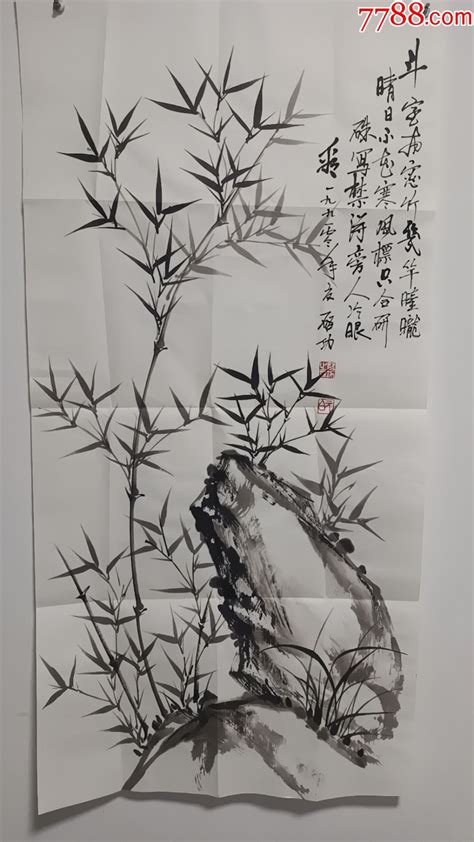 7788.com
斗室南窗竹幾竿曈曨
晴日不知寒風標只合研
硃寫禁得旁人冷眼
看 一九九零年夏 啟功